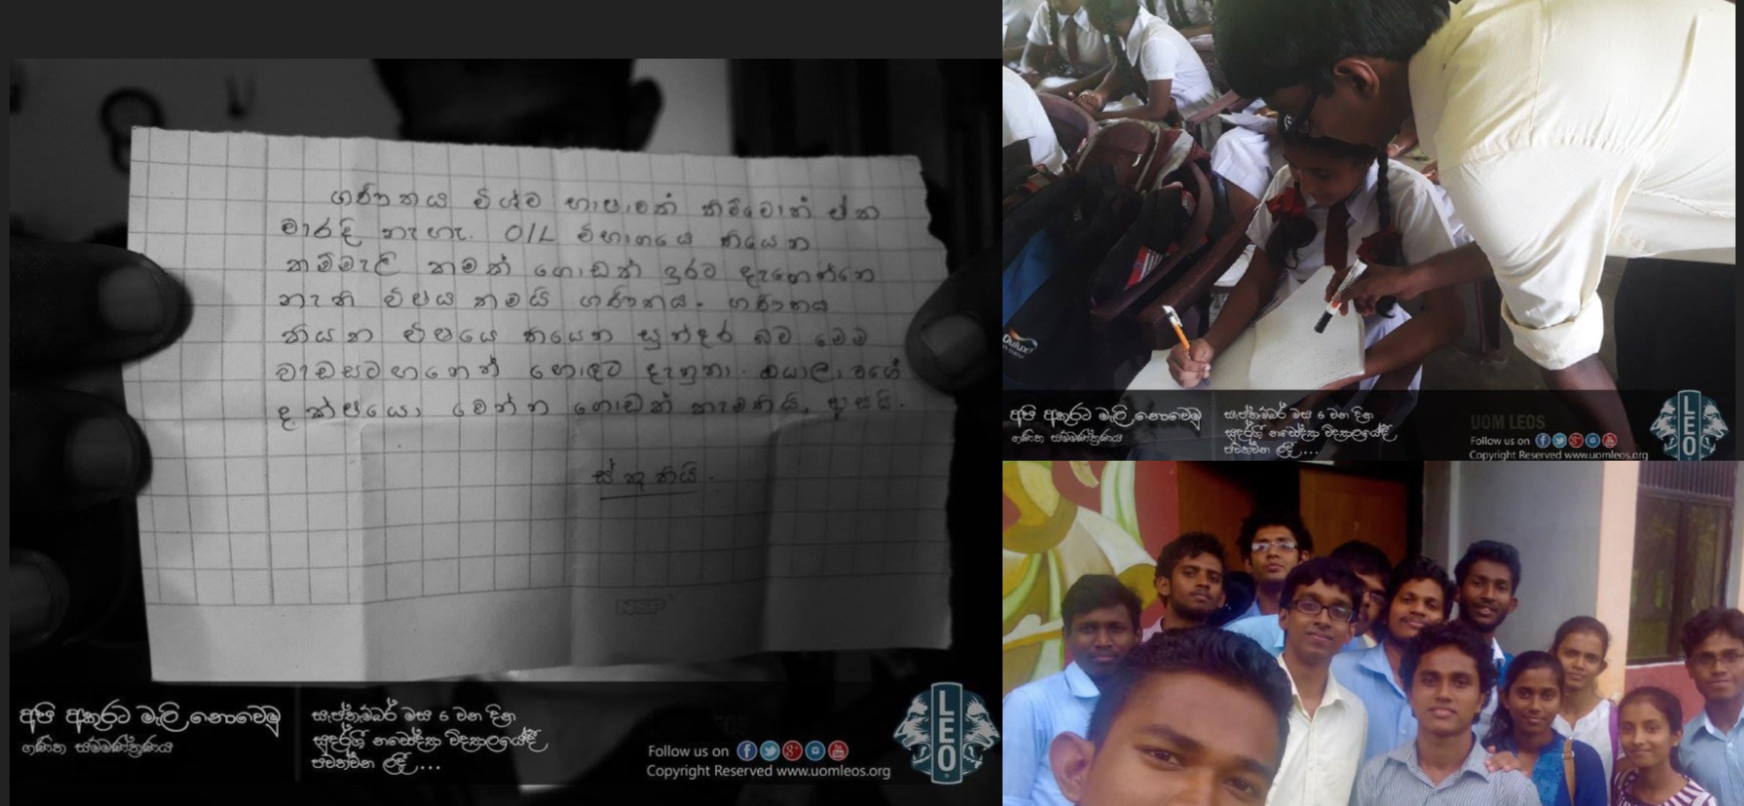 ගණිතය විශ්ව භාෂාවක් කිව්වොත් ඒක
වැරදි නැහැ. O/L විභාගයෙ තියෙන
කම්මැලි කමක් ගොඩක් දුරට දැනෙන්නෙ
නැති විෂය තමයි ගණිතය. ගණිතය
කියන විෂයෙ තියෙන සුන්දර බව මෙම
වැඩසටහනෙන් හොඳට දැනුනා. ඔයාලා වගේ
දක්ෂයො වෙන්න ගොඩක් කැමතියි, ආසයි.
ස්තූතියි.
NSP
අපි අකුරට මැලි නොවෙමු
ගණිත සම්මන්ත්‍රණය
සැප්තැම්බර් මස 6 වන දින
සුදර්ශී විද්‍යාලයේදී
පවත්වන ලදී...
Follow us on
Copyright Reserved www.uomleos.org
LEO
Dulux
අපි අකුරට මැලි නොවෙමු
ගණිත සම්මන්ත්‍රණය
සැප්තැම්බර් මස 6 වන දින
සුදර්ශී විද්‍යාලයේදී
පවත්වන ලදී...
UOM LEOS
Follow us on
Copyright Reserved www.uomleos.org
LEO